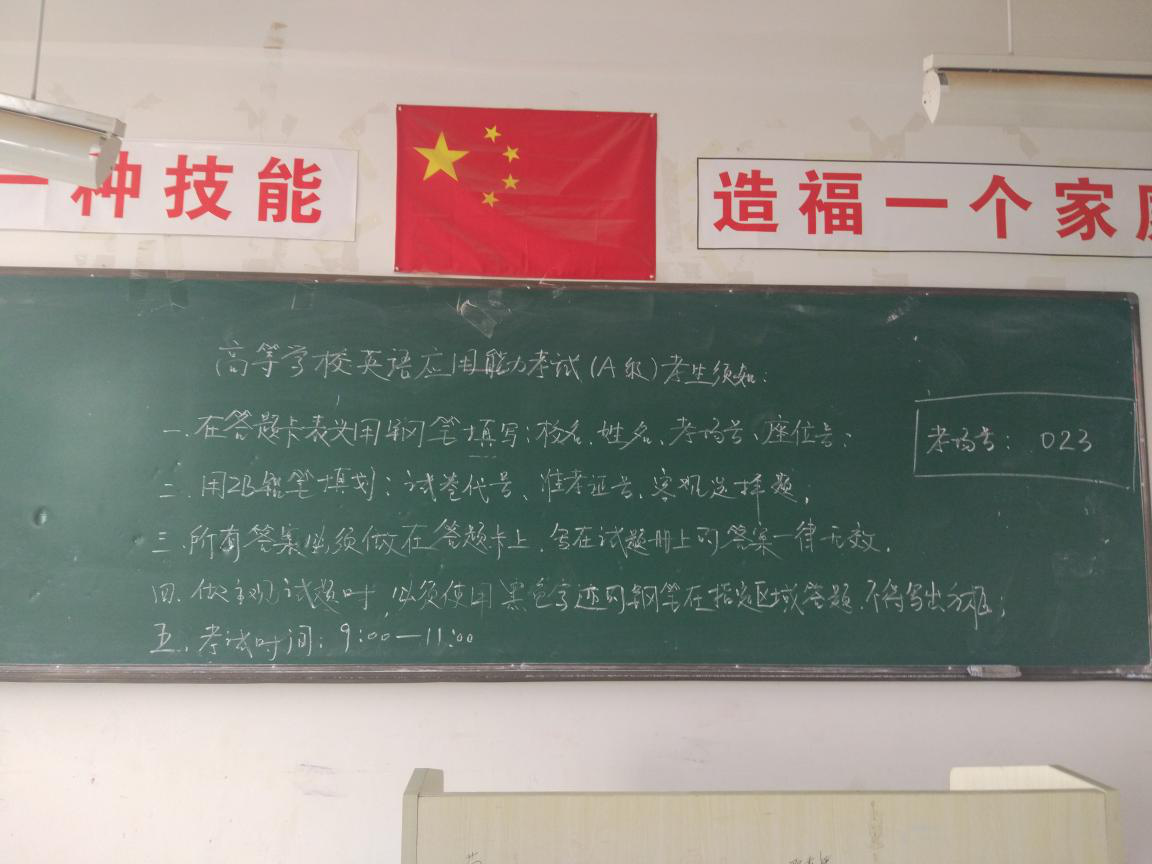 一种技能
造福一个家
高等学校英语应用能力考试(A级)考生须知:
一.在答题卡表头用钢笔填写:校名、姓名、考场号、座位号;
二.用2B铅笔填划:试卷代号、准考证号、客观选择题.
三.所有答案必须做在答题卡上.写在试题册上的答案一律无效.
四.做主观试题时,必须使用黑色字迹的钢笔在指定区域答题.不得写出方框;
五.考试时间:9:00—11:00
考场号: 023